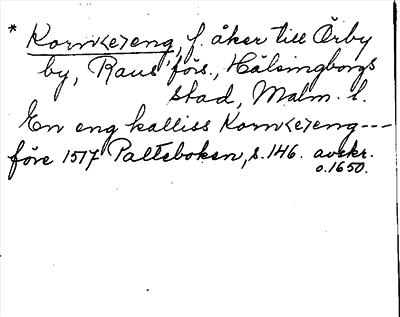 * Korn<e>eng, f. åker till Örby
by, Raus förs., Hälsingborgs
stad, Malm. l.
En eng kalliss Korn<e>eng---
före 1517 Palteboken, s. 146. avskr.
o. 1650.